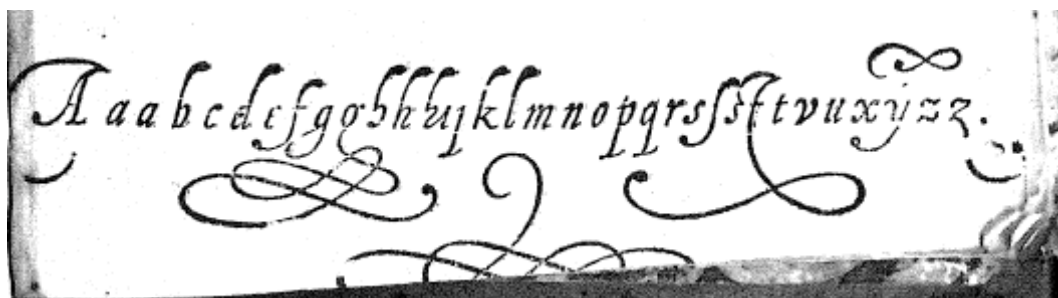 A a a b c d e f g g h h h i j k l m n o p q r s ſ s ſt t v u x ÿ z z.